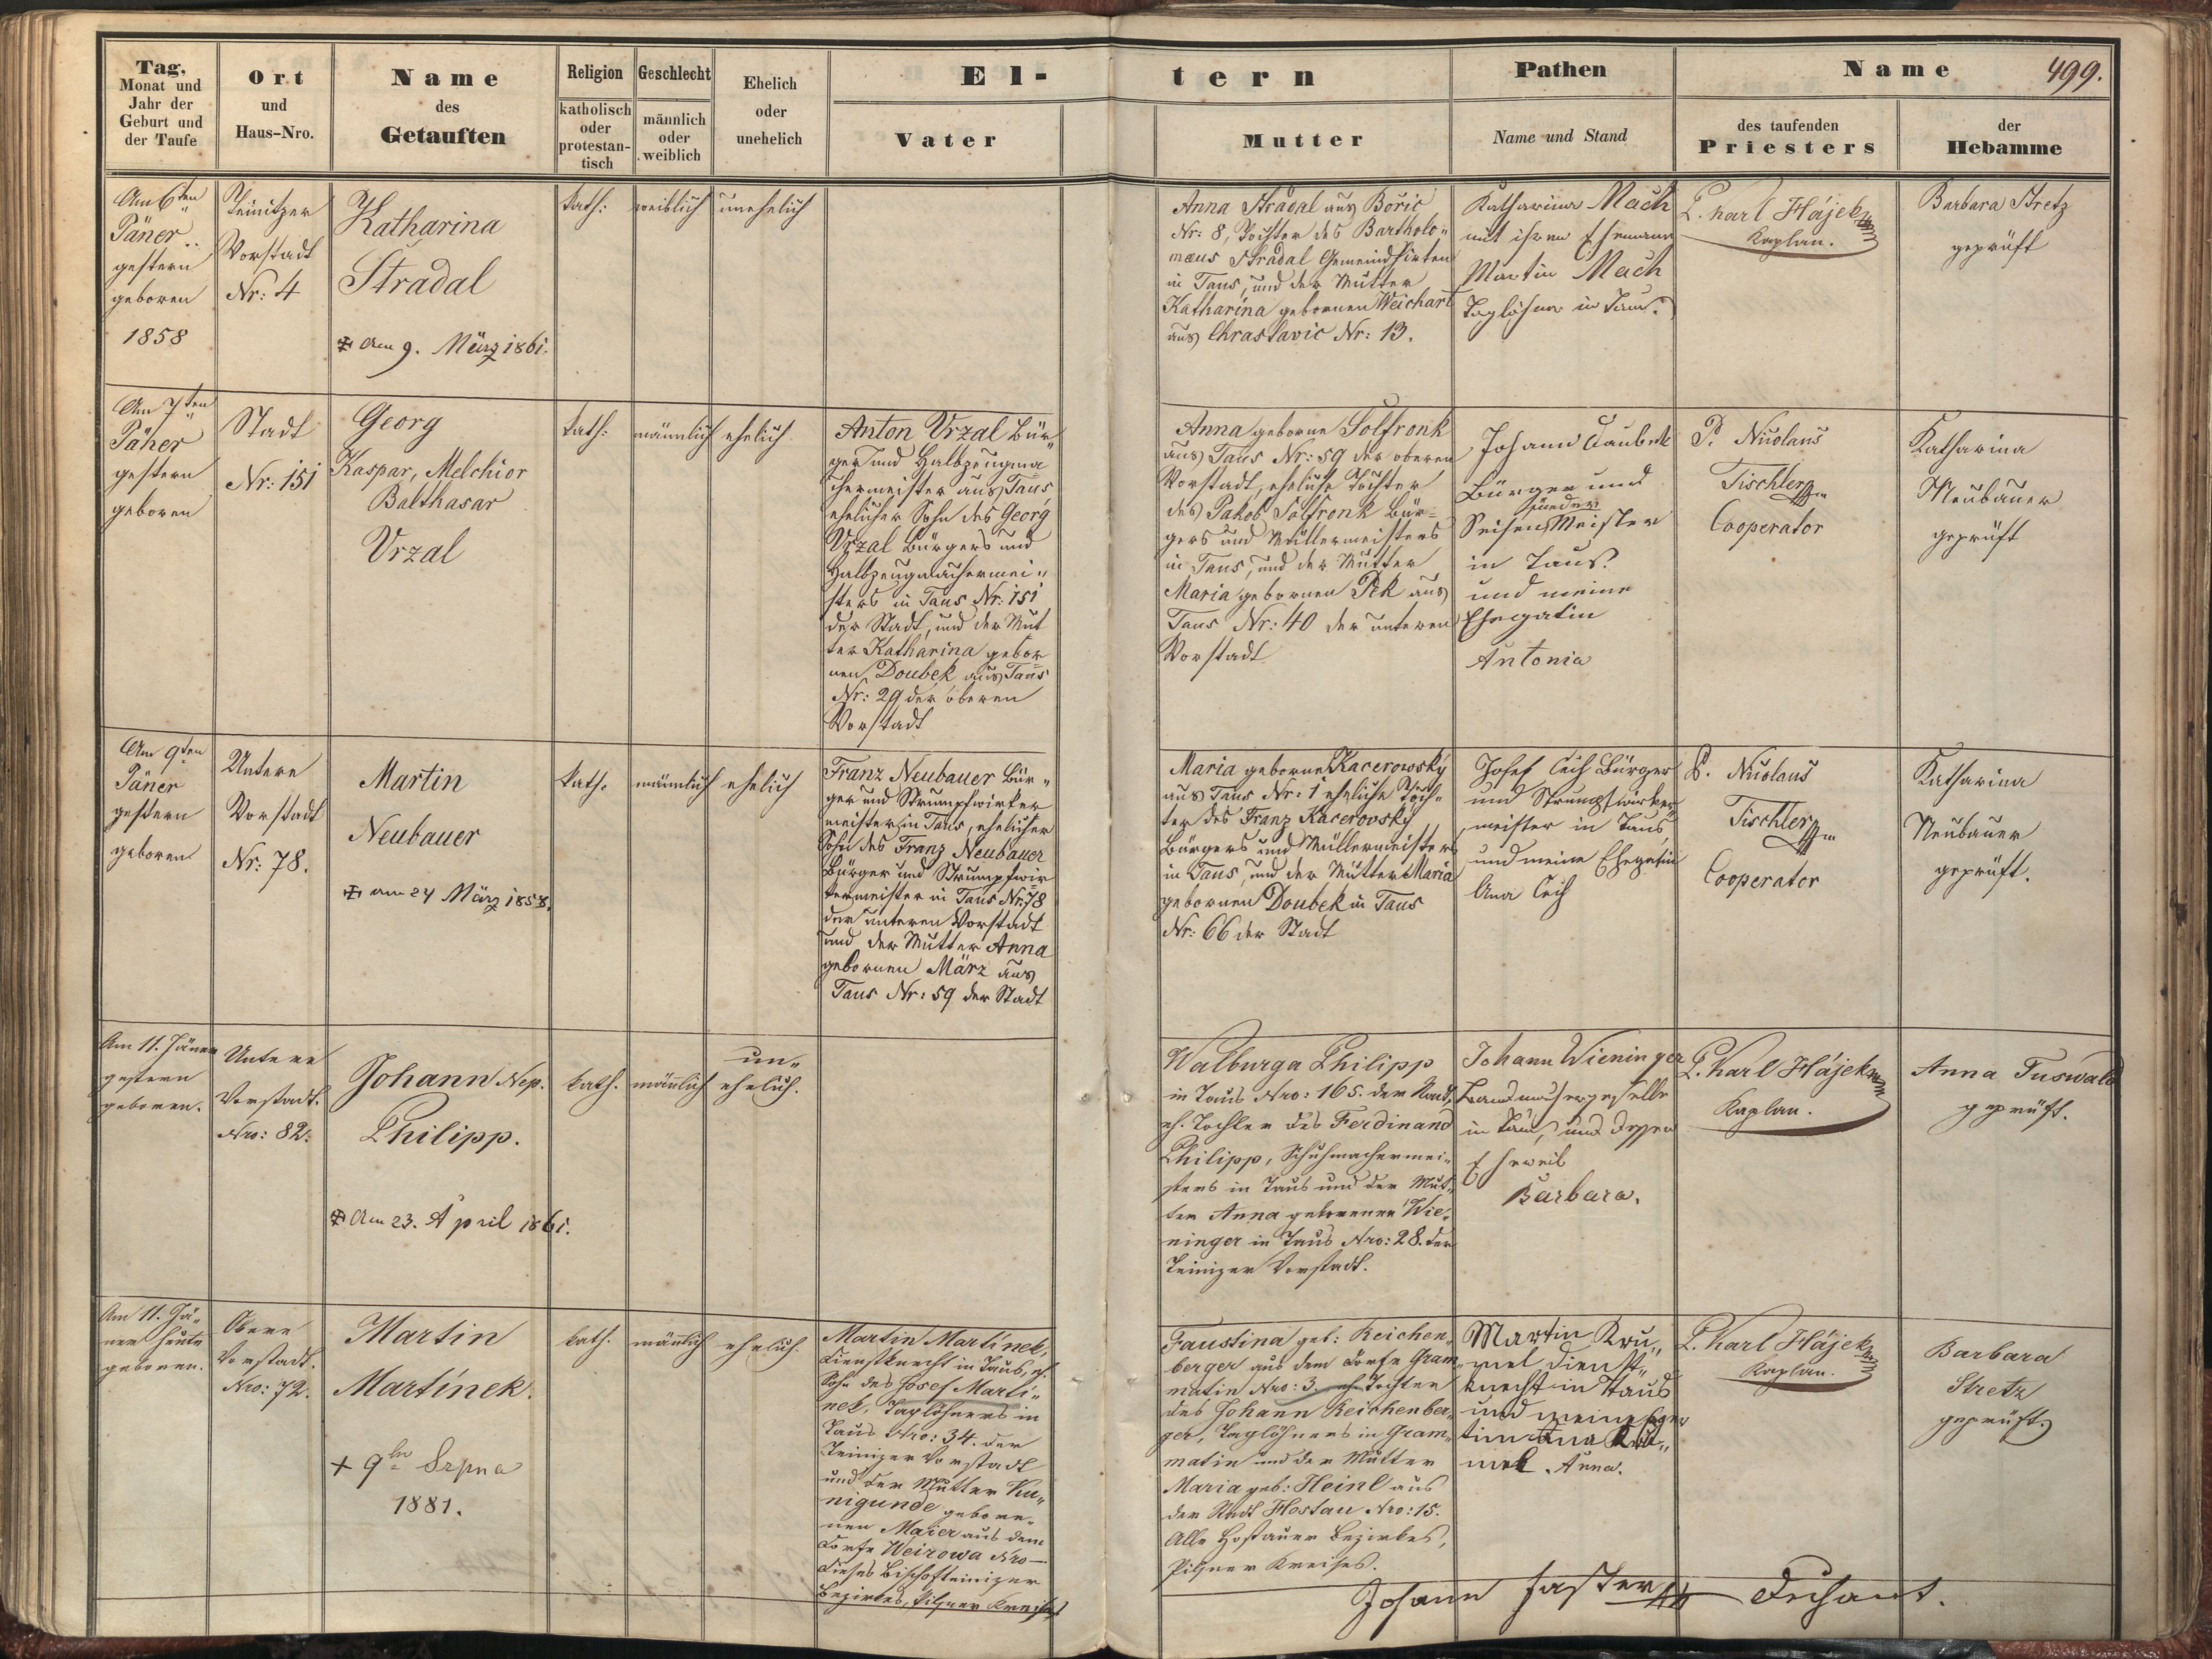 Tag,
Monat und
Jahr der
Geburt und
der Taufe
Ort
und
Haus-Nro.
Name
des
Getauften
Religion
katholisch
oder
protestan-
tisch
Geschlecht
männlich
oder
weiblich
Ehelich
oder
unehelich
El-
tern
Vater
Mutter
Pathen
Name und Stand
Name
499.
des taufenden
Priesters
der
Hebamme
Am 6ten
Päner
gestern
geboren
1858
Teinitzer
Vorstadt
Nr: 4
Katharina
Stradal
am 9. März 1861.
kath:
weiblich
unehelich
Anna Stradal aus Boric
Nr: 8, Tochter des Bartholo„
maeus Stradal Gemeindhirten
in Taus, und der Mutter
Katharina gebornen Weichart
aus Chrastavic Nr: 13.
Katharina Mach
mit ihrem Ehemann
Martin Mach
Taglöhner in Taus.
P. Karl Hájek
Kaplan.
Barbara Stretz
geprüft
Am 7ten
Päner
gestern
geboren
Stadt
Nr: 151
Georg
Kaspar, Melchior
Balthasar
Vrzal
kath:
männlich
ehelich
Anton Vrzal Bür„
ger und Halbzeugma
chermeister aus Taus
ehelicher Sohn des Georg
Vrzal Bürgers und
Halbzeugmachermei„
sters in Taus Nr: 151
der Stadt, und der Mut
ter Katharina gebor
nen Doubek aus Taus
Nr: 29 der oberen
Vorstadt
Anna geborne Solfronk
aus Taus Nr: 59 der oberen
Vorstadt, eheliche Tochter
des Jakob Solfronk Bür=
gers und Müllermeisters
in Taus, und der Mutter
Maria gebornen Pek aus
Taus Nr: 40 der unteren
Vorstadt
Johann
Bürger und
sieder
Seifen Meister
in Taus
und meine
Ehegatin
Antonia
P. Nicolaus
Tischler
Cooperator
Katharina
Neubauer
geprüft
Am 9ten
Päner
gestern
geboren
Untere
Vorstadt
Nr: 78.
Martin
Neubauer
am 24 März 1858.
kath.
männlich
ehelich
Franz Neubauer Bür„
ger und Strumpfwirker
meister in Taus, ehelicher
Sohn des Franz Neubauer
Bürger und Strumpfwir
kermeister in Taus Nr: 78
der unteren Vorstadt
und der Mutter Anna
gebornen März aus
Taus Nr: 59 der Stadt
Maria geborne Kacerowský
aus Taus Nr: 1 eheliche Toch„
ter des Franz Kacerovský
Bürgers und Müllermeister
in Taus, und der Mutter Maria
gebornen Doubek in Taus
Nr: 66 der Stadt
Josef Cech Bürger
und Strumpfwirker
meister in Taus,
und meine Ehegatin
Ana Cech
P. Nicolaus
Tischler
Cooperator
Katharina
Neubauer
geprüft.
Am 11. Jäner
gestern
geboren.
Untere
Vorstadt.
Nro: 82.
Johann Nep.
Philipp.
Am 23. April 1861.
kath.
männlich
un„
ehelich.
Walburga Philipp
in Taus Nro: 165. der Stadt,
eh. Tochter des Ferdinand
Philipp, Schuhmachermei„
sters in Taus und der Mut„
ter Anna gebornen Wie„
ninger in Taus Nro: 28. der
Teinizer Vorstadt.
Johann Wieninger
Bandmachergeselle
in Taus, und dessen
Eheweib
Barbara.
P. Karl Hájek
Kaplan.
Anna Tuswald
geprüft.
Am 11. Jä„
ner heute
geboren.
Obere
Vorstadt.
Nro: 72.
Martin
Martínek.
+ 9ho Srpna
1881.
kath.
männlich
ehelich.
Martin Martínek,
Dienstknecht in Taus, eh.
Sohn des Josef Marti„
nek, Taglöhners in
Taus Nro: 34. der
Teinizer Vorstadt
und der Mutter Ku„
nigunde gebore„
nen Maier aus dem
Dorfe Weirowa Nro—
dieses Bischofteinizer
Bezirkes, Pilsner Kreises
Faustina geb: Reichen„
berger aus dem Dorfe Gram„
matin Nro: 3. eh. Tochter
des Johann Reichenber„
ger, Taglöhners in Gram„
matin und der Mutter
Maria geb: Heinl aus
der Stadt Hostau Nro: 15.
Alle Hostauer Bezirkes,
Pilsner Kreises.
Martin Kru„
mel Dienst„
knecht in Taus
und meine
Anna.
P. Karl Hájek
Kaplan.
Barbara
Stretz
geprüft
Johann Faster
Dechant.